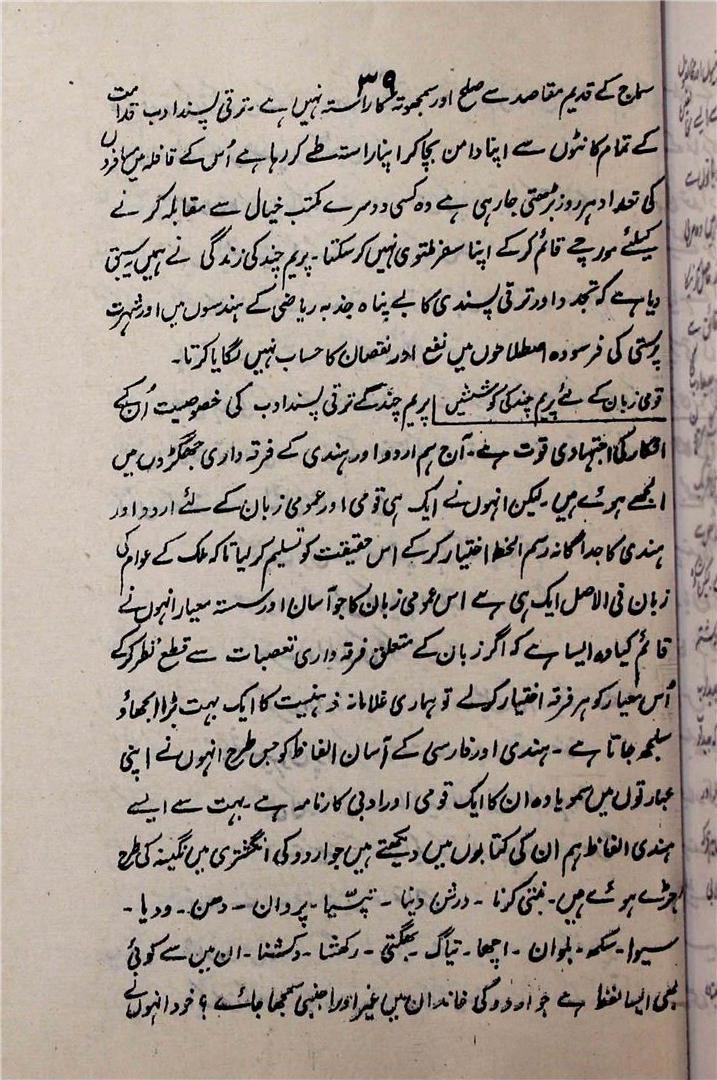 ۳۹
سماج کے قدیم مقاصد سے صلح اور سمجھوتہ کا راستہ نہیں ہے ۔ ترقی پسند ادب قدامت
کے تمام کانٹوں سے اپنا دامن بچا کر اپنا راستہ طے کر رہا ہے اُس کے قافلہ میں مسافروں
کی تعداد ہر روز بڑھتی جا رہی ہے وہ کسی دوسرے مکتب خیال سے مقابلہ کرنے
کیلئے مورچے قائم کر کے اپنا سفر ملتوی نہیں کر سکتا ۔ پریم چند کی زندگی نے ہمیں یہ سبق
دیا ہے کہ تجدد اور ترقی پسندی کا بے پناہ جذبہ ریاضی کے ہندسوں میں اور شہرت
پرستی کی فرسودہ اصطلاحوں میں نفع اور نقصان کا حساب نہیں لگایا کرتا ۔
قومی زبان کے لئے پریم چند کی کوششیں | پریم چند کے ترقی پسند ادب کی خصوصیت اُن کے
افکار کی اجتہادی قوت ہے ۔ آج ہم اردو اور ہندی کے فرقہ واری جھگڑوں میں
الجھے ہوئے ہیں ۔ لیکن انہوں نے ایک ہی قومی اور عمومی زبان کے لئے اردو اور
ہندی کا جداگانہ رسم الخط اختیار کر کے اس حقیقت کو تسلیم کر لیا تھا کہ ملک کے عوام کی
زبان فی الاصل ایک ہی ہے اس عمومی زبان کا جو آسان اور سستہ معیار انہوں نے
قائم کیا وہ ایسا ہے کہ اگر زبان کے متعلق فرقہ واری تعصبات سے قطع نظر کر کے
اُس معیار کو ہر فرقہ اختیار کر لے تو ہماری غلامانہ ذہنیت کا ایک بہت بڑا الجھاؤ
سلجھ جاتا ہے ۔ ہندی اور فارسی کے آسان الفاظ کو جس طرح انہوں نے اپنی
عبارتوں میں سمویا وہ ان کا ایک قومی اور ادبی کارنامہ ہے ۔ بہت سے ایسے
ہندی الفاظ ہم ان کی کتابوں میں دیکھتے ہیں جو اردو کی انگشتری میں نگینہ کی طرح
جڑے ہوئے ہیں ۔ بنتی کرنا ۔ درشن دینا ۔ تپسّیا ۔ پردان ۔ دھن ۔ ودیا ۔
سیوا ۔ سکھ ۔ بلوان ۔ اچھا ۔ تیاگ ۔ بھگتی ۔ رکھشا ۔ دکشنا ۔ ان میں سے کوئی
بھی ایسا لفظ ہے جو اردو کی خاندان میں غیر اور اجنبی سمجھا جائے ؟ خود انہوں نے